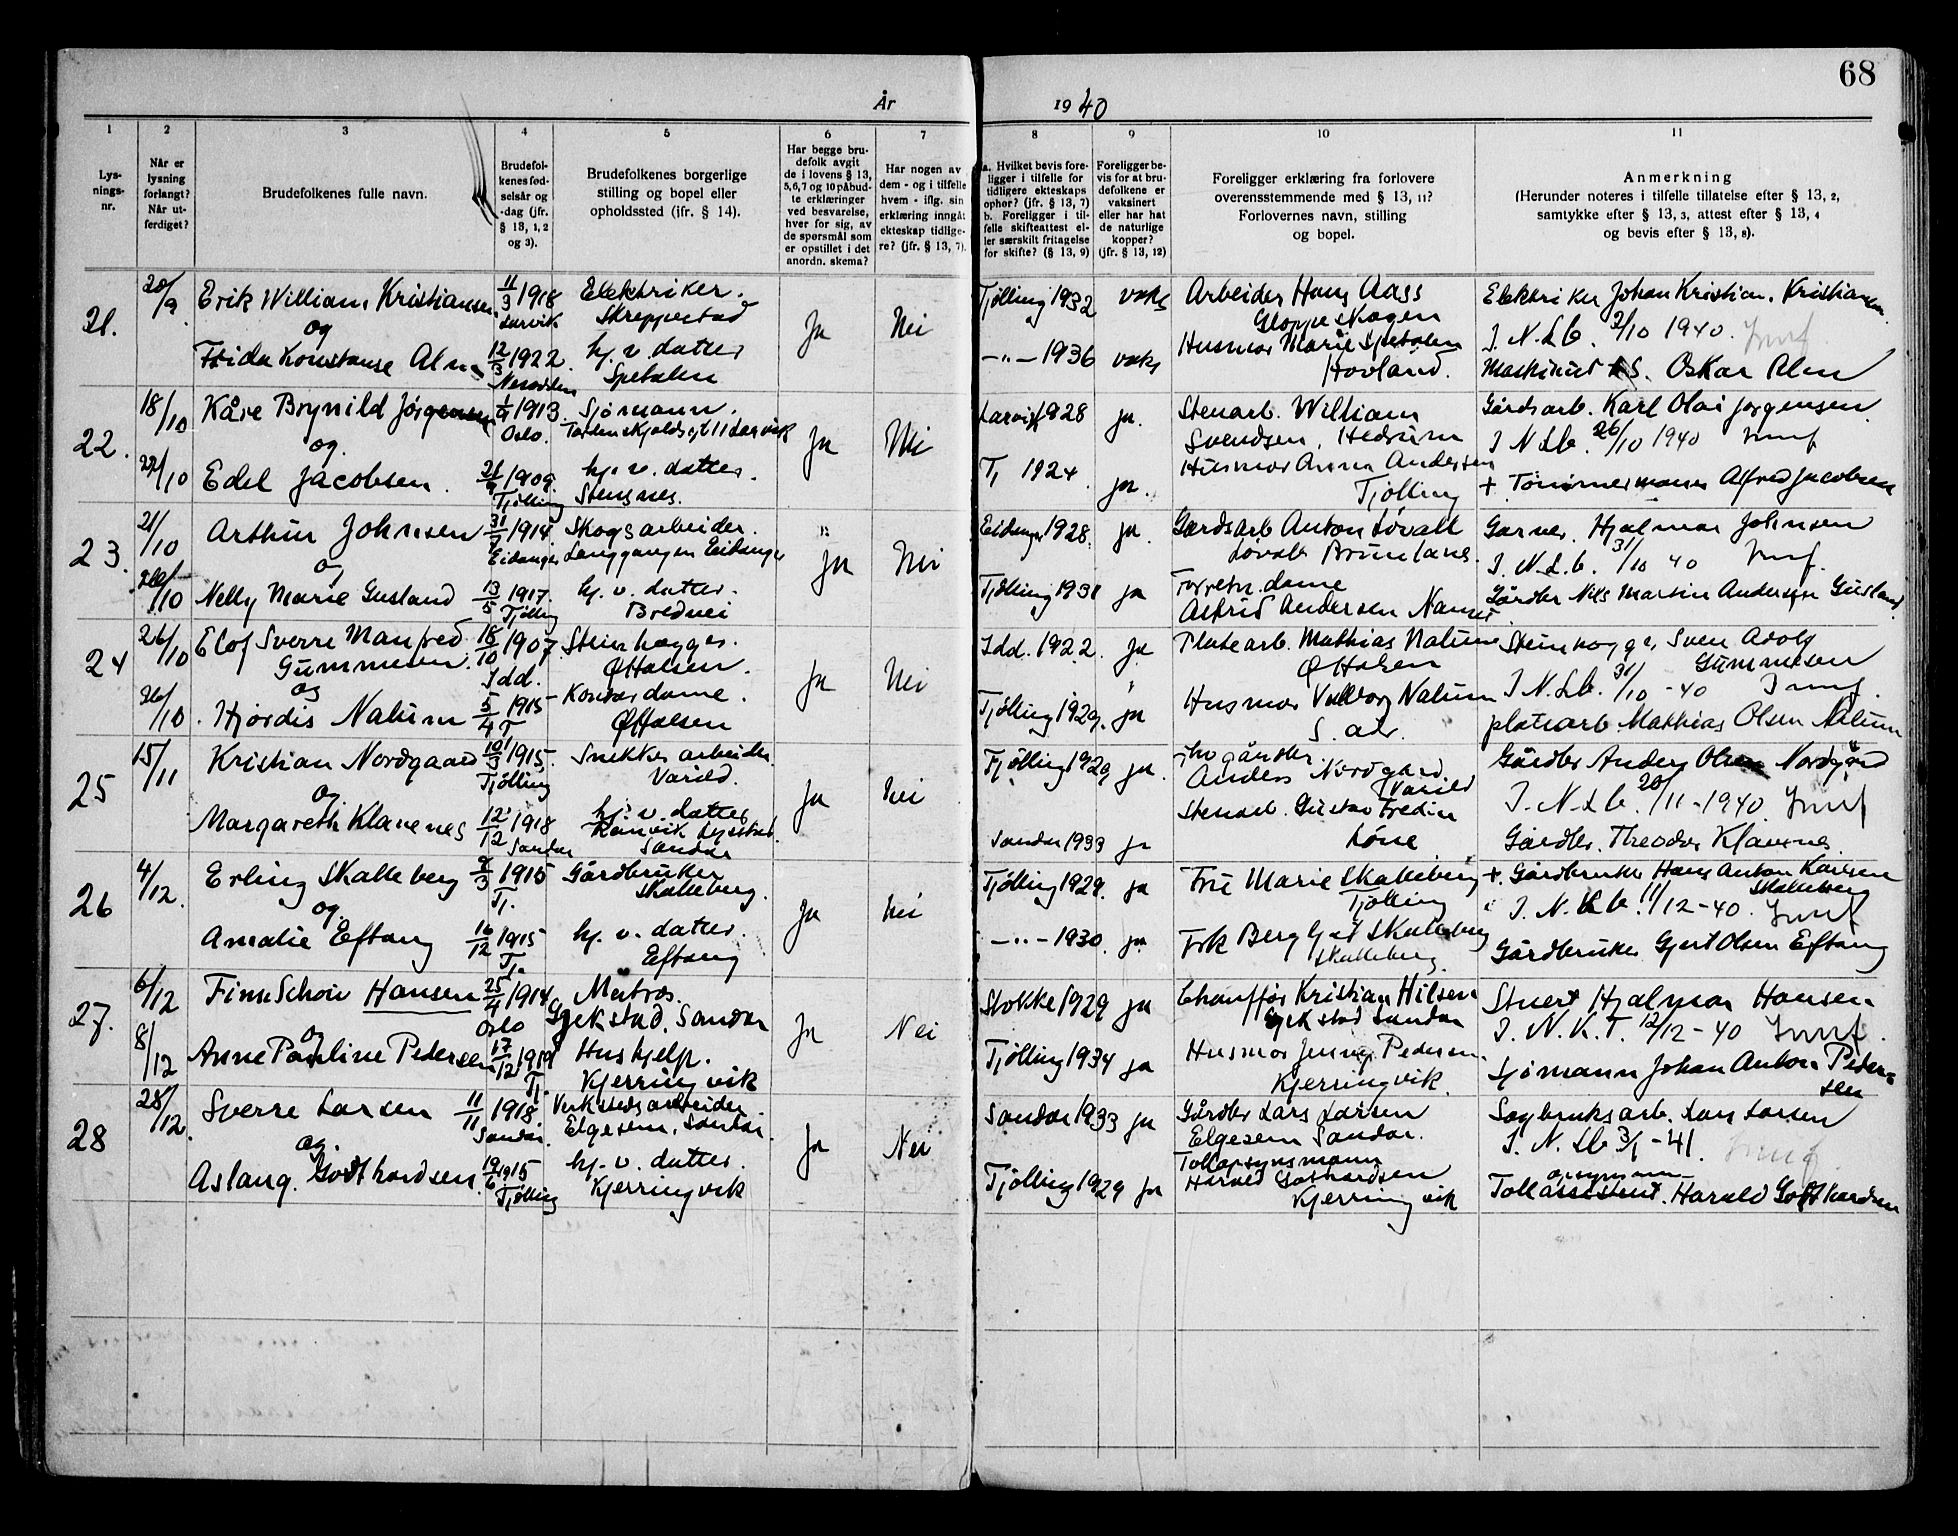 68
År 1940
1 2 3 4 5 6 7 8 9 10 11
Lys-
nings-
nr.
Når er
lysning
forlangt?
Når ut-
ferdiget?
Brudefolkenes fulle navn.
Brudefol-
kenes fød-
selsår og
-dag (jfr.
§ 13, 1, 2
og 3).
Brudefolkenes borgerlige
stilling og bopel eller
opholdssted (jfr. § 14).
Har begge bru-
defolk avgit
de i lovens § 13,
5, 6, 7 og 10 påbud-
te erklæringer
ved besvarelse,
hver for sig, av
de spørsmål som
er opstillet i det
anordn. skema?
Har nogen av
dem - og i tilfelle
hvem - iflg. sin
erklæring inngåt
ekteskap tidlige-
re? (jfr. § 13, 7).
a. Hvilket bevis fore-
ligger i tilfelle for
tidligere ekteskaps
ophør? (jfr. § 13, 7)
b. Foreligger i til-
felle skifteattest el-
ler særskilt fritagelse
for skifte? (§ 13, 9)
Foreligger be-
vis for at bru-
defolkene er
vaksinert
eller har hat
de naturlige
kopper?
(jfr. § 13, 12)
Foreligger erklæring fra forlovere
overensstemmende med § 13, 11?
Forlovernes navn, stilling
og bopel.
Anmerkning
(Herunder noteres i tilfelle tillatelse efter § 13, 2,
samtykke efter § 13, 3, attest efter § 13, 4
og bevis efter § 13, 8).
21.
20/9
Erik William Kristiansen
og
Frida Konstanse Alm
11/3 1918
Larvik
12/3 1922
Nesodden
Elektriker.
Skreppestad
hj. v. datter
Spetalen
Ja
Nei
Tjølling 1932
vaks
-"- 1936
vaks
Arbeider Hans Aass
Gloppeskogen
Husmor Marie Spetalen
Hovland.
Elektriker Johan Kristian Kristiansen
I. N. Lb. 2/10 1940.
Maskinist Oskar Alm
22.
18/10
22/10
Kåre Brynild Jørgensen
og
Edel Jacobsen.
1/9 1913.
Oslo.
1909.
Tjølling
Sjømann.
Tordenskjoldsgt 11 Larvik
hj. v. datter.
Stensnes.
Ja
Nei
Larvik 1928
ja.
Tj 1924
ja.
Stenarb. William
Svendsen, Hedrum
Husmor Anna Andersen
Tjølling
Gårdsarb. Karl Olai Jørgensen
I N Lb. 26/10 1940
+ Tømmermann Alfred Jacobsen
23.
21/10
26/10
Arthur Johnsen
og
Nelly Marie Gusland
31/7 1914
Eidanger
13/5 1917.
Tjølling
Skogsarbeider.
Langgangen Eidanger
hj. v. datter.
Bredvei
Ja
Nei
Eidanger 1928.
ja.
Tjølling 1931
ja
Gardsarb Anton Løvall
Løvall Brunlanes.
Forretn. dame
Astrid Andersen Nanset
Garver. Hjalmar Johnsen
I. N. L. b. 31/10 40
Gårdbr Nils Martin Andersen Gusland
24
26/10
26/10
Elof Sverre Manfred
Gummesen.
og
Hjørdis Nalum
18/10 1907.
Idd.
5/4 1915
T
Steinhogger.
Ø Halsen.
Kontordame.
Ø Halsen
Ja
Nei
Idd. 1922.
ja
Tjølling 1929.
ja
Platearb. Mathias Nalum
Ø Halsen
Husmor Valborg Nalum
S. adr.
Steinhogger, Sven Adolf
Gummesen
I N. Lb. 31/10 - 40
platearb. Mathias Olsen Nalum
25
15/11
Kristian Nordgaard
og
Margareth Klavenes
10/3 1915.
Tjølling
12/12 1918
Sandar
Snekker arbeider
Varild.
hj. v. datter
Ranvik
Sandar
Ja
Nei
Tjølling 1929
ja.
Sandar 1933
ja
Anders Nordgård
Varild
Stenarb. Gustav Fredin
Løne
Gårdbr Anders Olsen Nordgård
I. N. Lb. 20/11 - 1940
Gårdbr. Theodor Klavenes
26
4/12.
Erling Skalleberg
og
Amalie Eftang
1915
Tj.
16/12 1915
Tj.
Gårdbruker
Skalleberg.
hj. v. datter.
Eftang
Ja
Nei
Tjølling 1929.
ja
-"- 1930.
ja
Fru Marie Skalleberg
Tjølling
Frk Bergljot Skalleberg
Skalleberg.
+. Gårdbruker Hans Anton Karlsen
Skalleberg
I. N. Lb. 11/12 - 40.
Gårdbruker Gjert Olsen Eftang
27.
6/12
8/12
Finn Schøie Hansen
og
Anne Pauline Pedersen
25/4 1914
Oslo
17/12 1919
Tj.
Matros.
Gjekstad, Sandar
Hushjelp.
Kjerringvik
Ja
Nei
Stokke 1929
ja
Tjølling 1934
ja
Chauffør Kristian Hilsen
Gjekstad Sandar
Husmor Jenny Pedersen.
Kjerringvik.
Stuert Hjalmar Hansen
I. N. K. T. 12/12 - 40
Sjømann Johan Anton Peder-
sen
28
28/12.
Sverre Larsen
og.
Aslaug. Godthardsen.
11/11 1918
Sandar.
19/6 1915
Tjølling
Verkstedsarbeider.
Elgesem, Sandar.
hj. v. datter.
Kjerringvik
Ja
Nei
Sandar 1933
ja
Tjølling 1929
ja
Gårdbr Lars Larsen
Elgesem Sandar.
Tollopsynsmann
Harald Gothardsen
Kjerringvik
Sagbruksarb. Lars Larsen
I. N. Lb 3/1 - 41.
opsynsmann
Tollassistent. Harald Gotthardsen